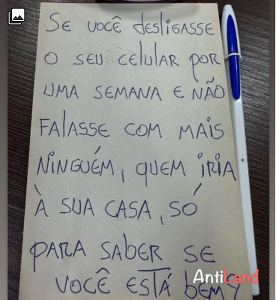 SE VOCÊ DESLIGASSE
O SEU CELULAR POR
UMA SEMANA E NÃO
FALASSE COM MAIS
NINGUÉM, QUEM IRIA
À SUA CASA, SÓ
PARA SABER SE
VOCÊ ESTÁ BEM?
AntiLand